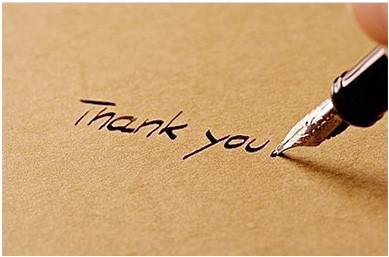 Thank you.